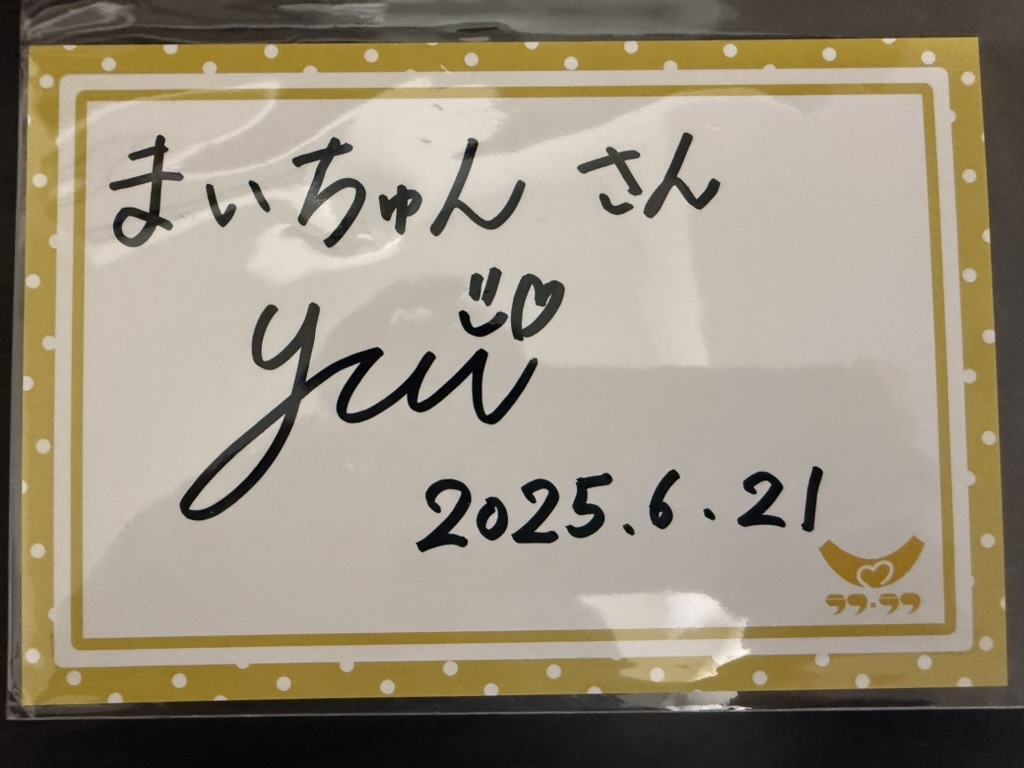 まぃちゅん さん
yui
2025.6.21
ラフ×ラフ